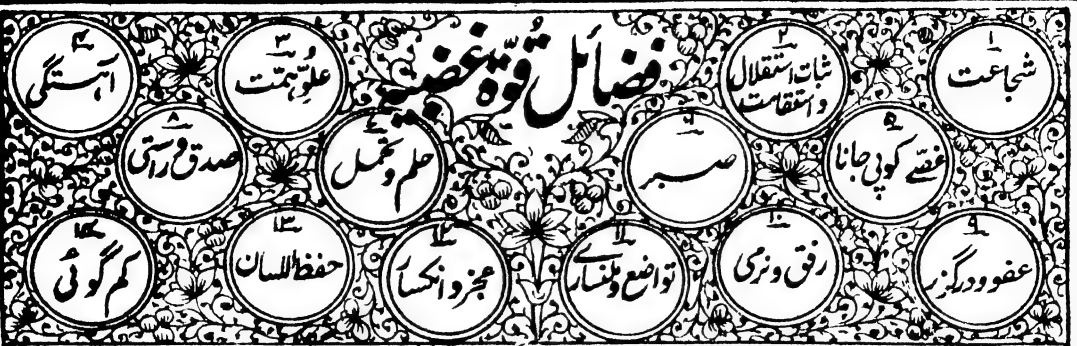 فضائل قوّۃ غضبیہ
۱
شجاعت
۲
ثبات استقلال
و استقامت
۳
علوِّ ہمّت
۴
آہستگی
۵
غصّے کو پی جانا
۶
صبر
۷
حلم و تحمل
۸
صدق و راستی
۹
عفو و درگزر
۱۰
رفق و نرمی
۱۱
تواضع و ملنساری
۱۲
عجز و انکسار
۱۳
حفظ اللسان
۱۴
کم گوئی